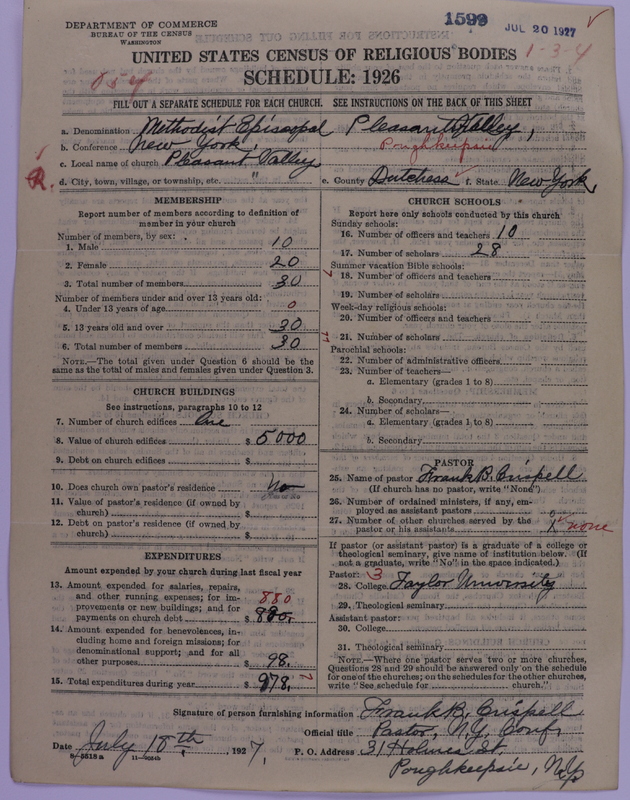 DEPARTMENT OF COMMERCE
BUREAU OF THE CENSUS
WASHINGTON
1599
JUL 20 1927
UNITED STATES CENSUS OF RELIGIOUS BODIES
1-3-4
SCHEDULE: 1926
FILL OUT A SEPARATE SCHEDULE FOR EACH CHURCH. SEE INSTRUCTIONS ON THE BACK OF THIS SHEET
a. Denomination Methodist Episcopal Pleasant Valley,
b. Conference New York, Poughkeepsie
c. Local name of church Pleasant Valley
R. d. City, town, village, or township, etc. " e. County Dutchess f. State New York
MEMBERSHIP
Report number of members according to definition of
member in your church
Number of members, by sex:
1. Male 10
2. Female 20
3. Total number of members 30
Number of members under and over 13 years old:
4. Under 13 years of age 0
5. 13 years old and over 30
6. Total number of members 30
NOTE.—The total given under Question 6 should be the
same as the total of males and females given under Question 3.
CHURCH BUILDINGS
See instructions, paragraphs 10 to 12
7. Number of church edifices One
8. Value of church edifices $ 5000
9. Debt on church edifices $
10. Does church own pastor's residence No
11. Value of pastor's residence (if owned by
church) $
12. Debt on pastor's residence (if owned by
church) $
EXPENDITURES
Amount expended by your church during last fiscal year
13. Amount expended for salaries, repairs,
and other running expenses; for im- 880
provements or new buildings; and for
payments on church debt $ 880.
14. Amount expended for benevolences, in-
cluding home and foreign missions; for
denominational support; and for all
other purposes $ 98.
15. Total expenditures during year $ 978.
CHURCH SCHOOLS
Report here only schools conducted by this church
Sunday schools:
16. Number of officers and teachers 10
17. Number of scholars 28
Summer vacation Bible schools:
18. Number of officers and teachers
19. Number of scholars
Week-day religious schools:
20. Number of officers and teachers
21. Number of scholars
Parochial schools:
22. Number of administrative officers
23. Number of teachers—
a. Elementary (grades 1 to 8)
b. Secondary
24. Number of scholars—
a. Elementary (grades 1 to 8)
b. Secondary
PASTOR
25. Name of pastor Frank B. Crispell
(If church has no pastor, write "None")
26. Number of ordained ministers, if any, em-
ployed as assistant pastors
27. Number of other churches served by the
pastor or his assistants none
If pastor (or assistant pastor) is a graduate of a college or
theological seminary, give name of institution below. (If
not a graduate, write "No" in the space indicated.)
Pastor: 3
28. College Taylor University
29. Theological seminary
Assistant pastor:
30. College
31. Theological seminary
NOTE.—Where one pastor serves two or more churches,
Questions 28 and 29 should be answered only on the schedule
for one of the churches; on the schedules for the other churches,
write "See schedule for church."
Signature of person furnishing information Frank B. Crispell
Official title Pastor, N.Y. Conf.
Date July 18th, 1927, P. O. Address 31 Holmes St.
8-5518a
Poughkeepsie, N.Y.